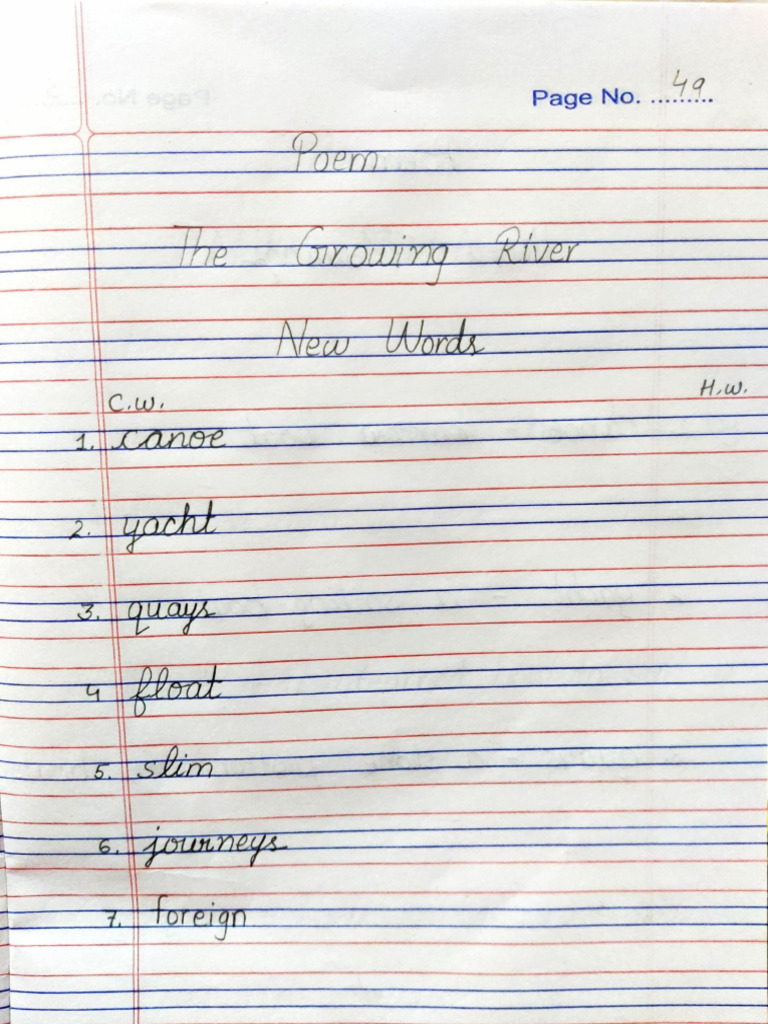 Page No. ......... 49
Poem
The Growing River
New Words
C.W. H.W.
1. canoe
2. yacht
3. quays
4 float
5. slim
6. journeys
7. foreign